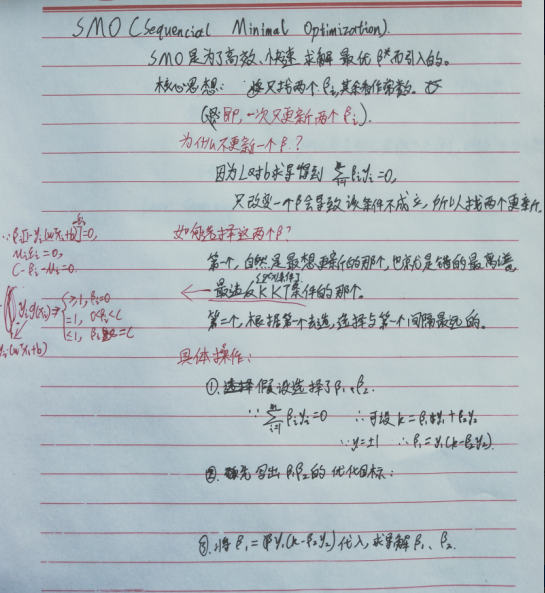 SMO (Sequencial Minimal Optimization).
SMO是为了高效、快速求解最优β*而引入的。
核心思想: 每次只找两个βi,其余看作常数。
(即,一次只更新两个βi).
为什么不更新一个β?
因为L对b求导得到 Σ(i=1) βiyi=0,
只改变一个β会导致该条件不成立,所以找两个更新.
如何选择这两个β?
第一个,自然是最想更新的那个,也就是错的最离谱
最违反KKT条件的那个。
第二个,根据第一个去选,选择与第一个间隔最远的。
∵ βi[1-yi(wᵀxi+b)]=0,
μiξi=0,
C-βi-μi=0.
yig(xi)⇒{≥1, βi=0
=1, 0<βi<C
≤1, βi=C
yi(wᵀxi+b)
具体操作:
①.假设选择了β1、β2.
∵ Σ(i=1) βiyi=0 ∴可设 k=β1y1+β2y2
∵y=±1 ∴β1=y1(k-β2y2).
②.先写出β1β2的优化目标:
③.将β1=y1(k-β2y2)代入,求导解β1、β2.